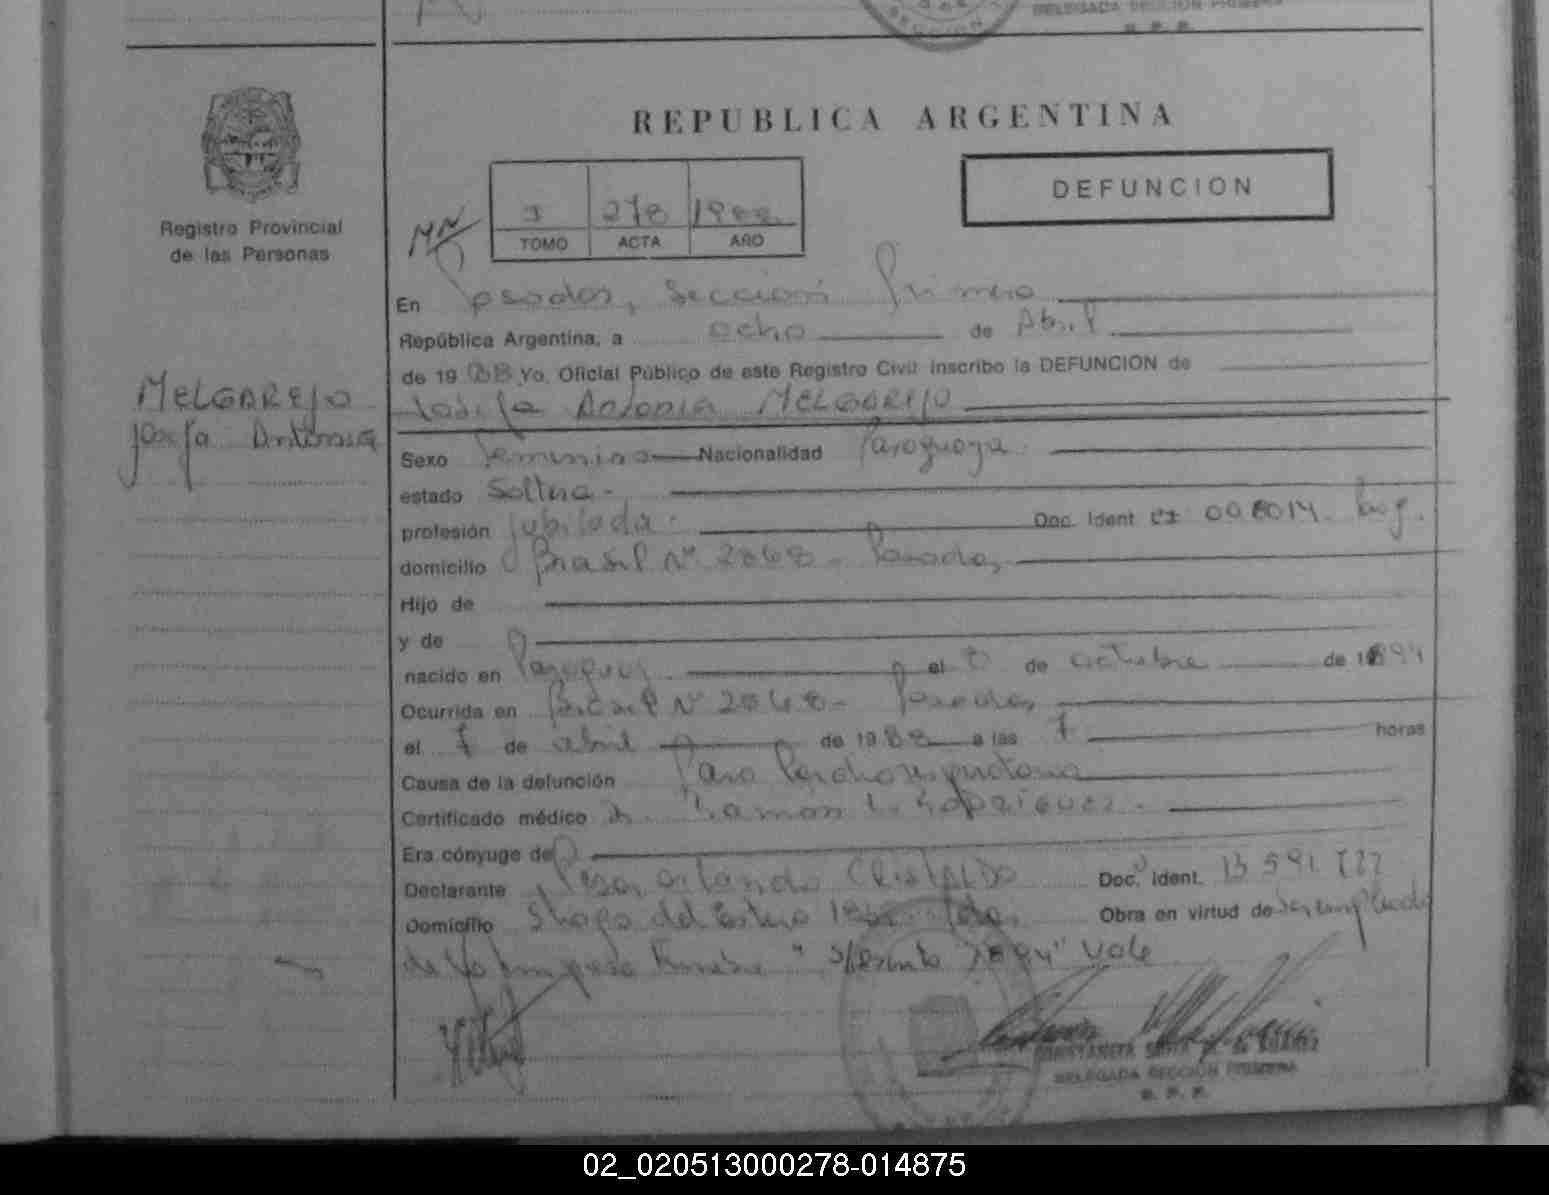 DELEGADA SECCION PRIMERA
R. P. P.
REPUBLICA ARGENTINA
DEFUNCION
I 278 1988
TOMO ACTA AÑO
Registro Provincial
de las Personas
En Posadas, Sección Primera
República Argentina, a ocho de Abril
de 1988 Yo, Oficial Público de este Registro Civil inscribo la DEFUNCION de
Josefa Antonia MELGAREJO
MELGAREJO
Josefa Antonia
Sexo Femenino Nacionalidad Paraguaya
estado Soltera -
profesión jubilada - Doc. Ident.
domicilio Brasil Nº 2868 - Posadas
Hijo de
y de
nacido en Paraguay el de octubre de 1894
Ocurrida en Brasil Nº 2868 - Posadas
el 7 de abril de 1988 a las 7 horas
Causa de la defunción Paro Cardiorespiratorio
Certificado médico Dr. Ramon RODRIGUEZ -
Era cónyuge de
Declarante Orlando CRISTALDO Doc. Ident. 13 591
Domicilio Stgo del Estero Pdas. Obra en virtud de ser empleado
de la Empresa Funebre " 1894" Vale
DELEGADA SECCIÓN PRIMERA
R. P. P.
02_020513000278-014875